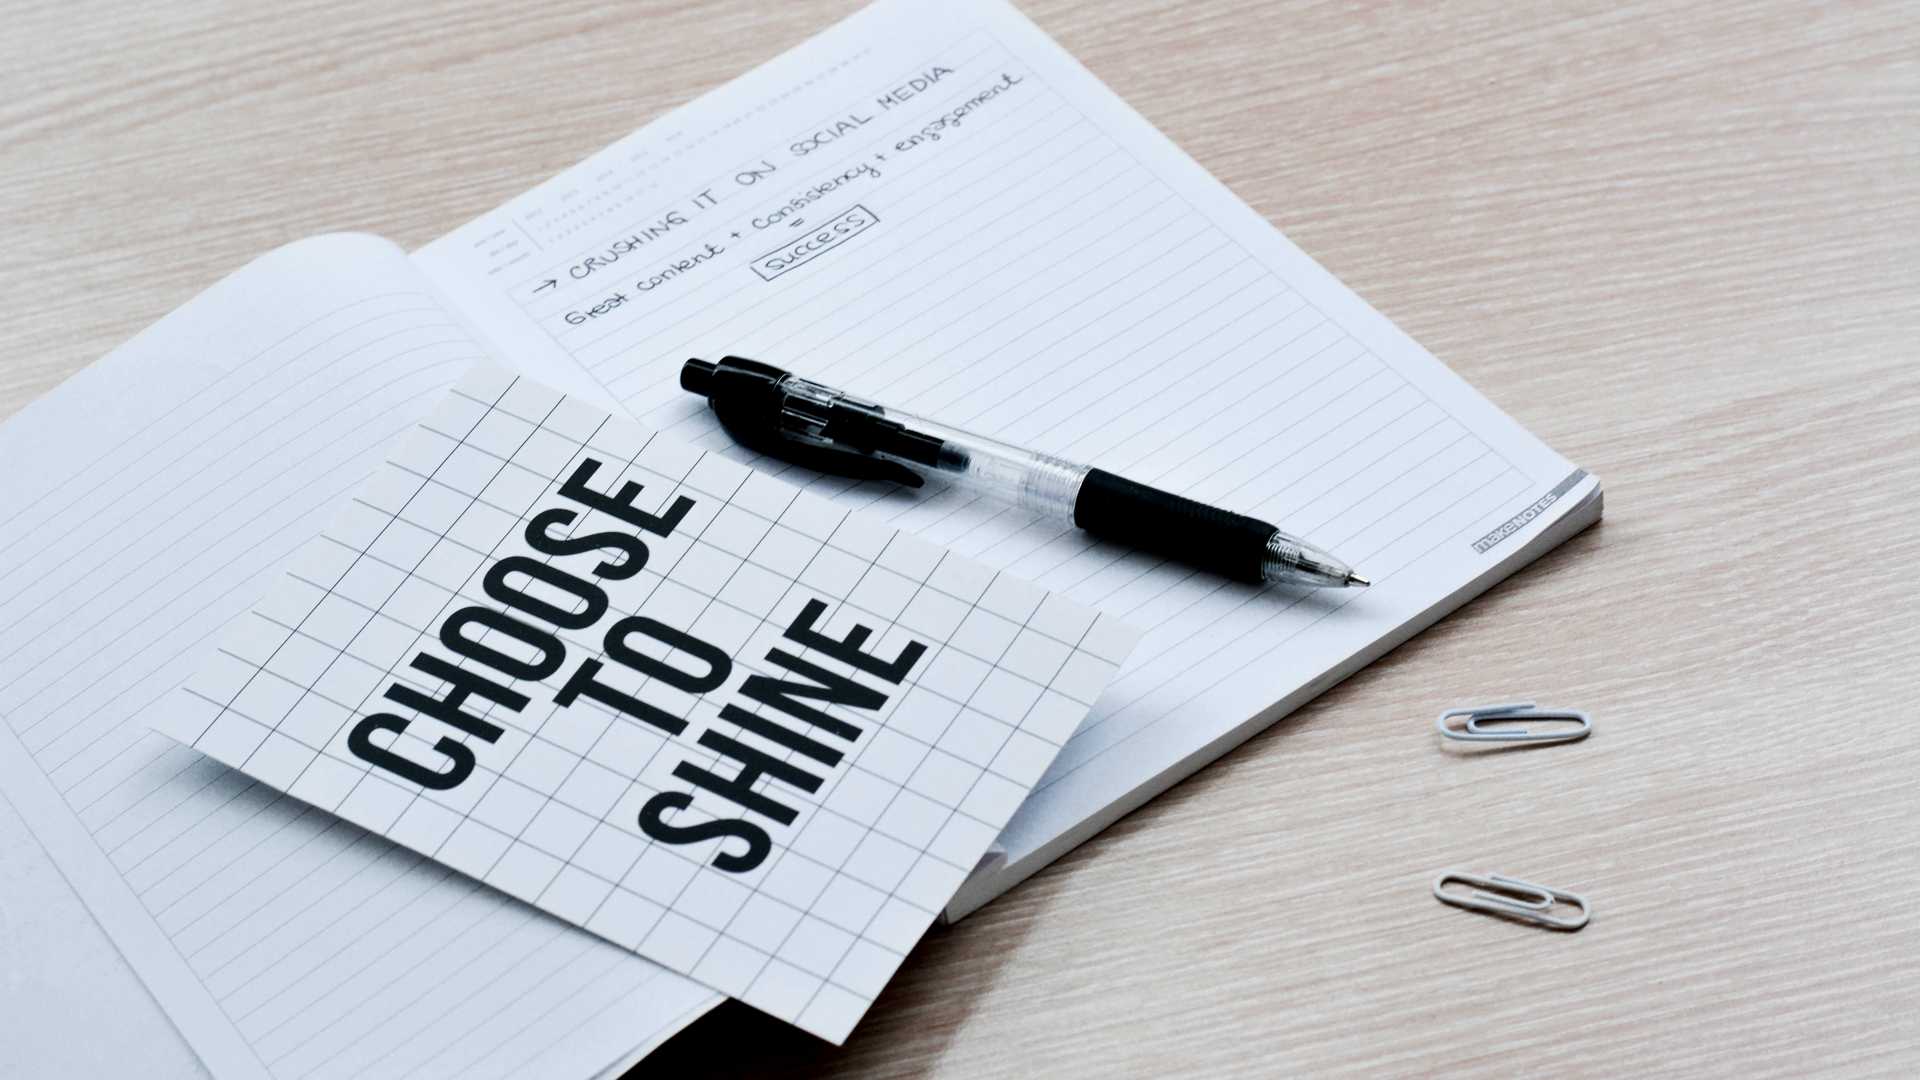 → CRUSHING IT ON SOCIAL MEDIA
Great content + Consistency + engagement
=
success
CHOOSE
TO
SHINE
makeNOTES